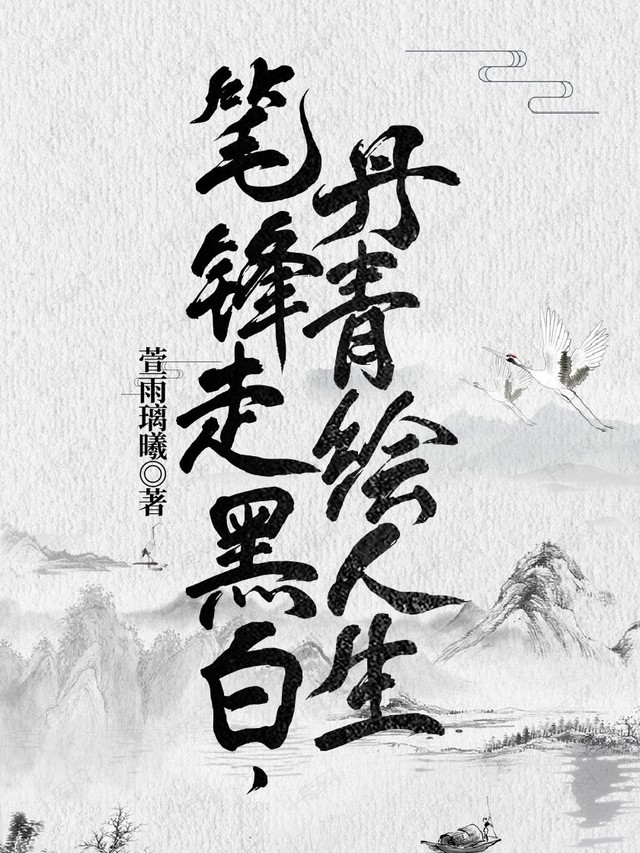 笔锋走黑白，
丹青绘人生
萱雨璃曦◎著